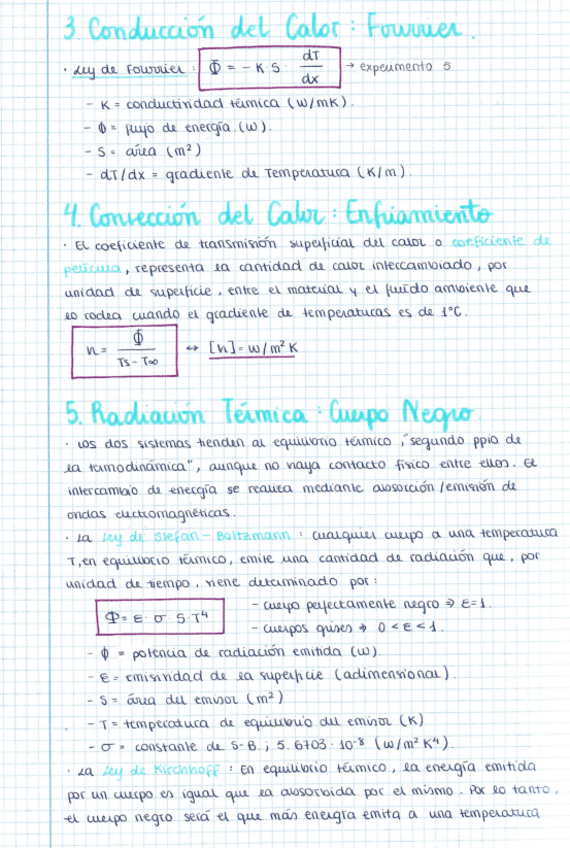 3. Conducción del Calor : Fourrier.
· Ley de Fourrier : Φ = - K · S · dT/dx → experimento 5
- K = conductividad térmica (W/mK).
- Φ = flujo de energía (W).
- S = área (m²)
- dT/dx = gradiente de Temperatura (K/m).
4. Convección del Calor : Enfriamiento
· El coeficiente de transmisión superficial del calor o coeficiente de
película, representa la cantidad de calor intercambiado, por
unidad de superficie, entre el material y el fluído ambiente que
lo rodea cuando el gradiente de temperaturas es de 1°C.
h = Φ / Ts - T∞ ↔ [h] = W/m² K
5. Radiación Térmica : Cuerpo Negro.
· Los dos sistemas tienden al equilibrio térmico, "segundo ppio de
la termodinámica", aunque no haya contacto físico entre ellos. El
intercambio de energía se realiza mediante absorción/emisión de
ondas electromagnéticas.
· La Ley de Stefan-Boltzmann : cualquier cuerpo a una temperatura
T, en equilibrio térmico, emite una cantidad de radiación que, por
unidad de tiempo, viene determinado por :
Φ = ε · σ · S · T⁴
- cuerpo perfectamente negro ⇒ ε = 1.
- cuerpos grises → 0 < ε < 1.
- Φ = potencia de radiación emitida (W).
- ε = emisividad de la superficie (adimensional).
- S = área del emisor (m²)
- T = temperatura de equilibrio del emisor (K)
- σ = constante de S-B. ; 5.6703 · 10⁻⁸ (W/m² K⁴).
· La Ley de Kirchhoff : En equilibrio térmico, la energía emitida
por un cuerpo es igual que la absorbida por el mismo. Por lo tanto,
el cuerpo negro será el que más energía emita a una temperatura